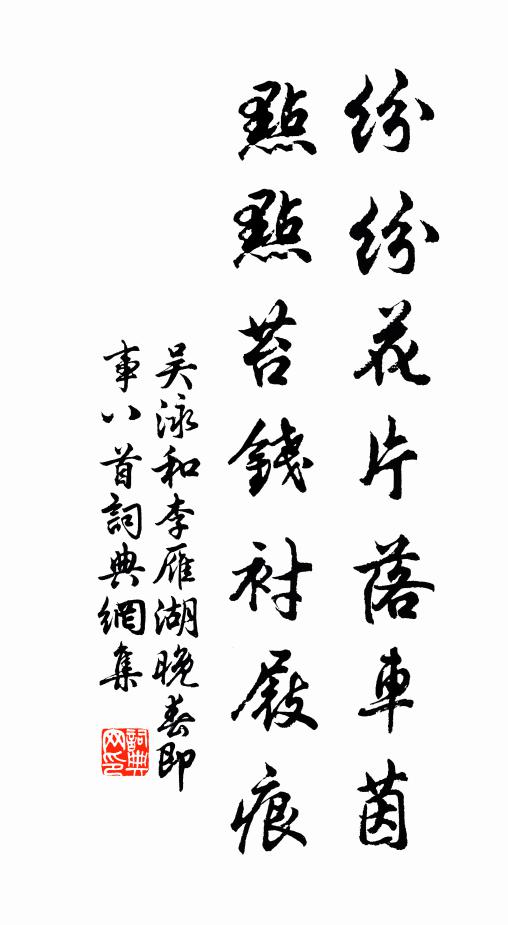 紛紛花片落車茵
點點苔錢衬屐痕
吴泳和李雁湖晚春即
事八首詞典網集
詞典网印